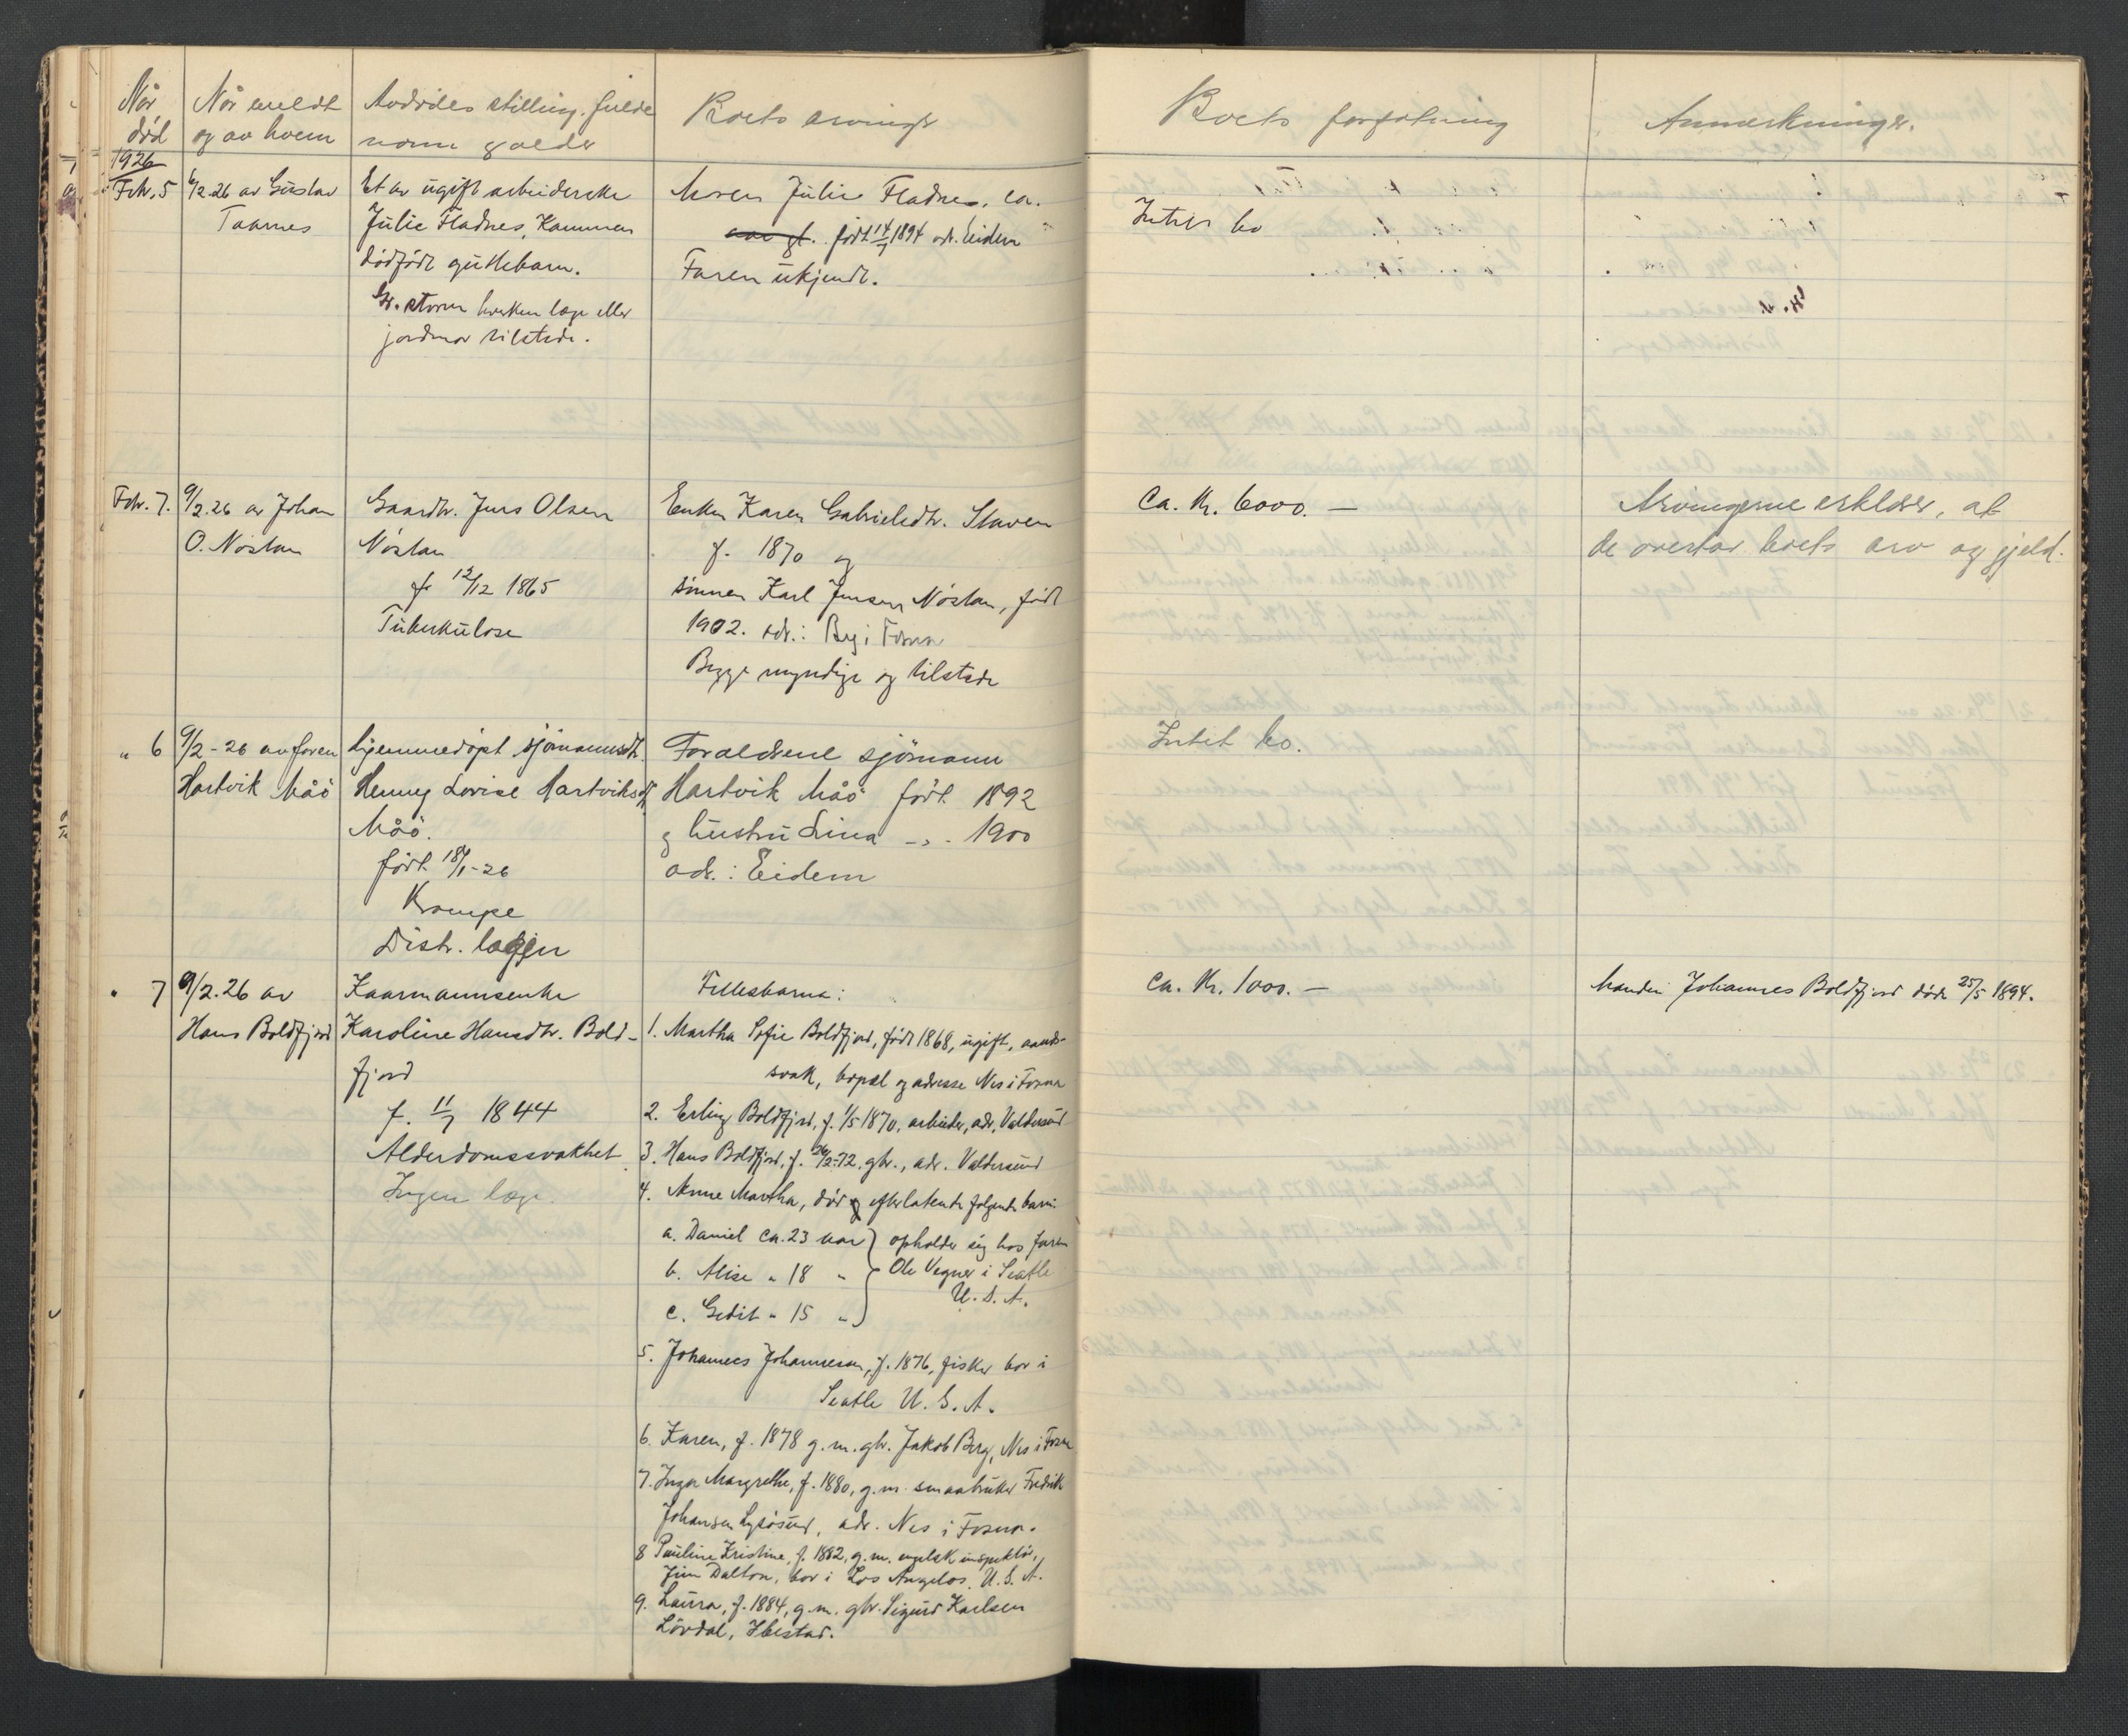 Når død
Når meldt og av hvem
Avdødes stilling, fulde navn og alder
Boets arvinger
Boets forfatning
Anmerkninger.
1926
Febr. 5
6/2.26 av Gustav
Taarnes
Et av ugift arbeiderske
Julie Fladnes, Kammen
dødfødt guttebarn.
jordmor tilstede.
Moren Julie Fladnes, ca.
født 14/7 1894 adr. Eidem
Faren ukjendt.
Intet bo
Febr. 7.
9/2.26 av Johan
O. Nöstan
Gaardbr. Jens Olsen
Nöstan
f. 12/12 1865
Tuberkulose
Enken Karen Gabrielsdtr. Staven
f. 1870 og
sönnen Karl Jensen Nöstan, født
1902. adr.: By i Fosna
Begge myndige og tilstede
Ca. Kr. 6000. —
Arvingerne erklærer, at
de overtar boets arv og gjeld.
" 6
9/2-26 av faren
Hartvik Måö
hjemmedöpt sjömannsdt.
Henny Lovise Hartviksdt.
Måö.
född 18/1-26
Krampe
Distr. lægen
Foraldrene sjömann
Hartvik Måö född 1892
og hustru Lina -"- 1900
adr.: Eidem
Intet bo.
" 7
9/2.26 av
Hans Boldfjord
Kaarmannsenke
Karoline Hansdtr. Bold-
fjord
f. 11/7 1844
Alderdomssvakhet
Ingen læge.
Fellesbarna:
1. Martha Sofie Boldfjord, född 1868, ugift, aands-
svak, bopæl og adresse Nes i Fosna
2. Erling Boldfjord, f. 1/5 1870, arbeider, adr. Valdersund
3. Hans Boldfjord, f. 26/2-72, gbr., adr. Valdersund
4. Anne Martha, död og efterlatende følgende barn:
a. Daniel ca. 23 aar } opholder sig hos faren
b. Alise " 18 " } Ole Vegner i Seatle
U. S. A.
c. Gedit " 15 " }
5. Johannes Johannesen, f. 1876, fisker bor i
Seatle U. S. A.
6. Karen, f. 1878 g. m. gbr. Jakob Berg, Nes i Fosna
7. Inga Margrethe, f. 1880, g. m. smaabruker Fredrik
Johansen Lysösund, adr. Nes i Fosna.
8 Pauline Kristine, f. 1882, g. m. engelsk inspektör,
Jim Dalton, bor i Los Angelos, U. S. A.
9. Laura, f. 1884, g. m. gbr. Sigurd Karlsen
Lövdal, Ibestad.
Ca. Kr. 1000. —
Manden Johannes Boldfjord döde 25/5 1894.